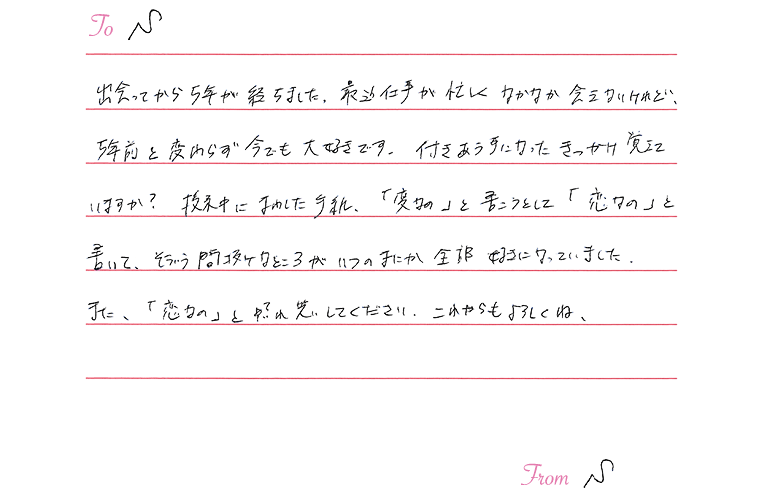 To S
出会ってから5年が経ちました。最近仕事が忙しくなかなか会えないけれど、
5年前と変わらず今でも大好きです。付きあう事になったきっかけ覚えて
いますか？ 授業中にまわした手紙、「変なの」と書こうとして「恋なの」と
書いて、そういう間抜けなところがいつのまにか全部好きになっていました。
また、「恋なの」と照れ笑いしてください。これからもよろしくね、
From S